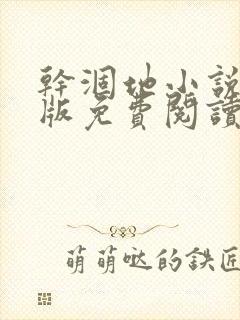 幹涸地小說
版免費閱讀
萌萌哒的鉄匠